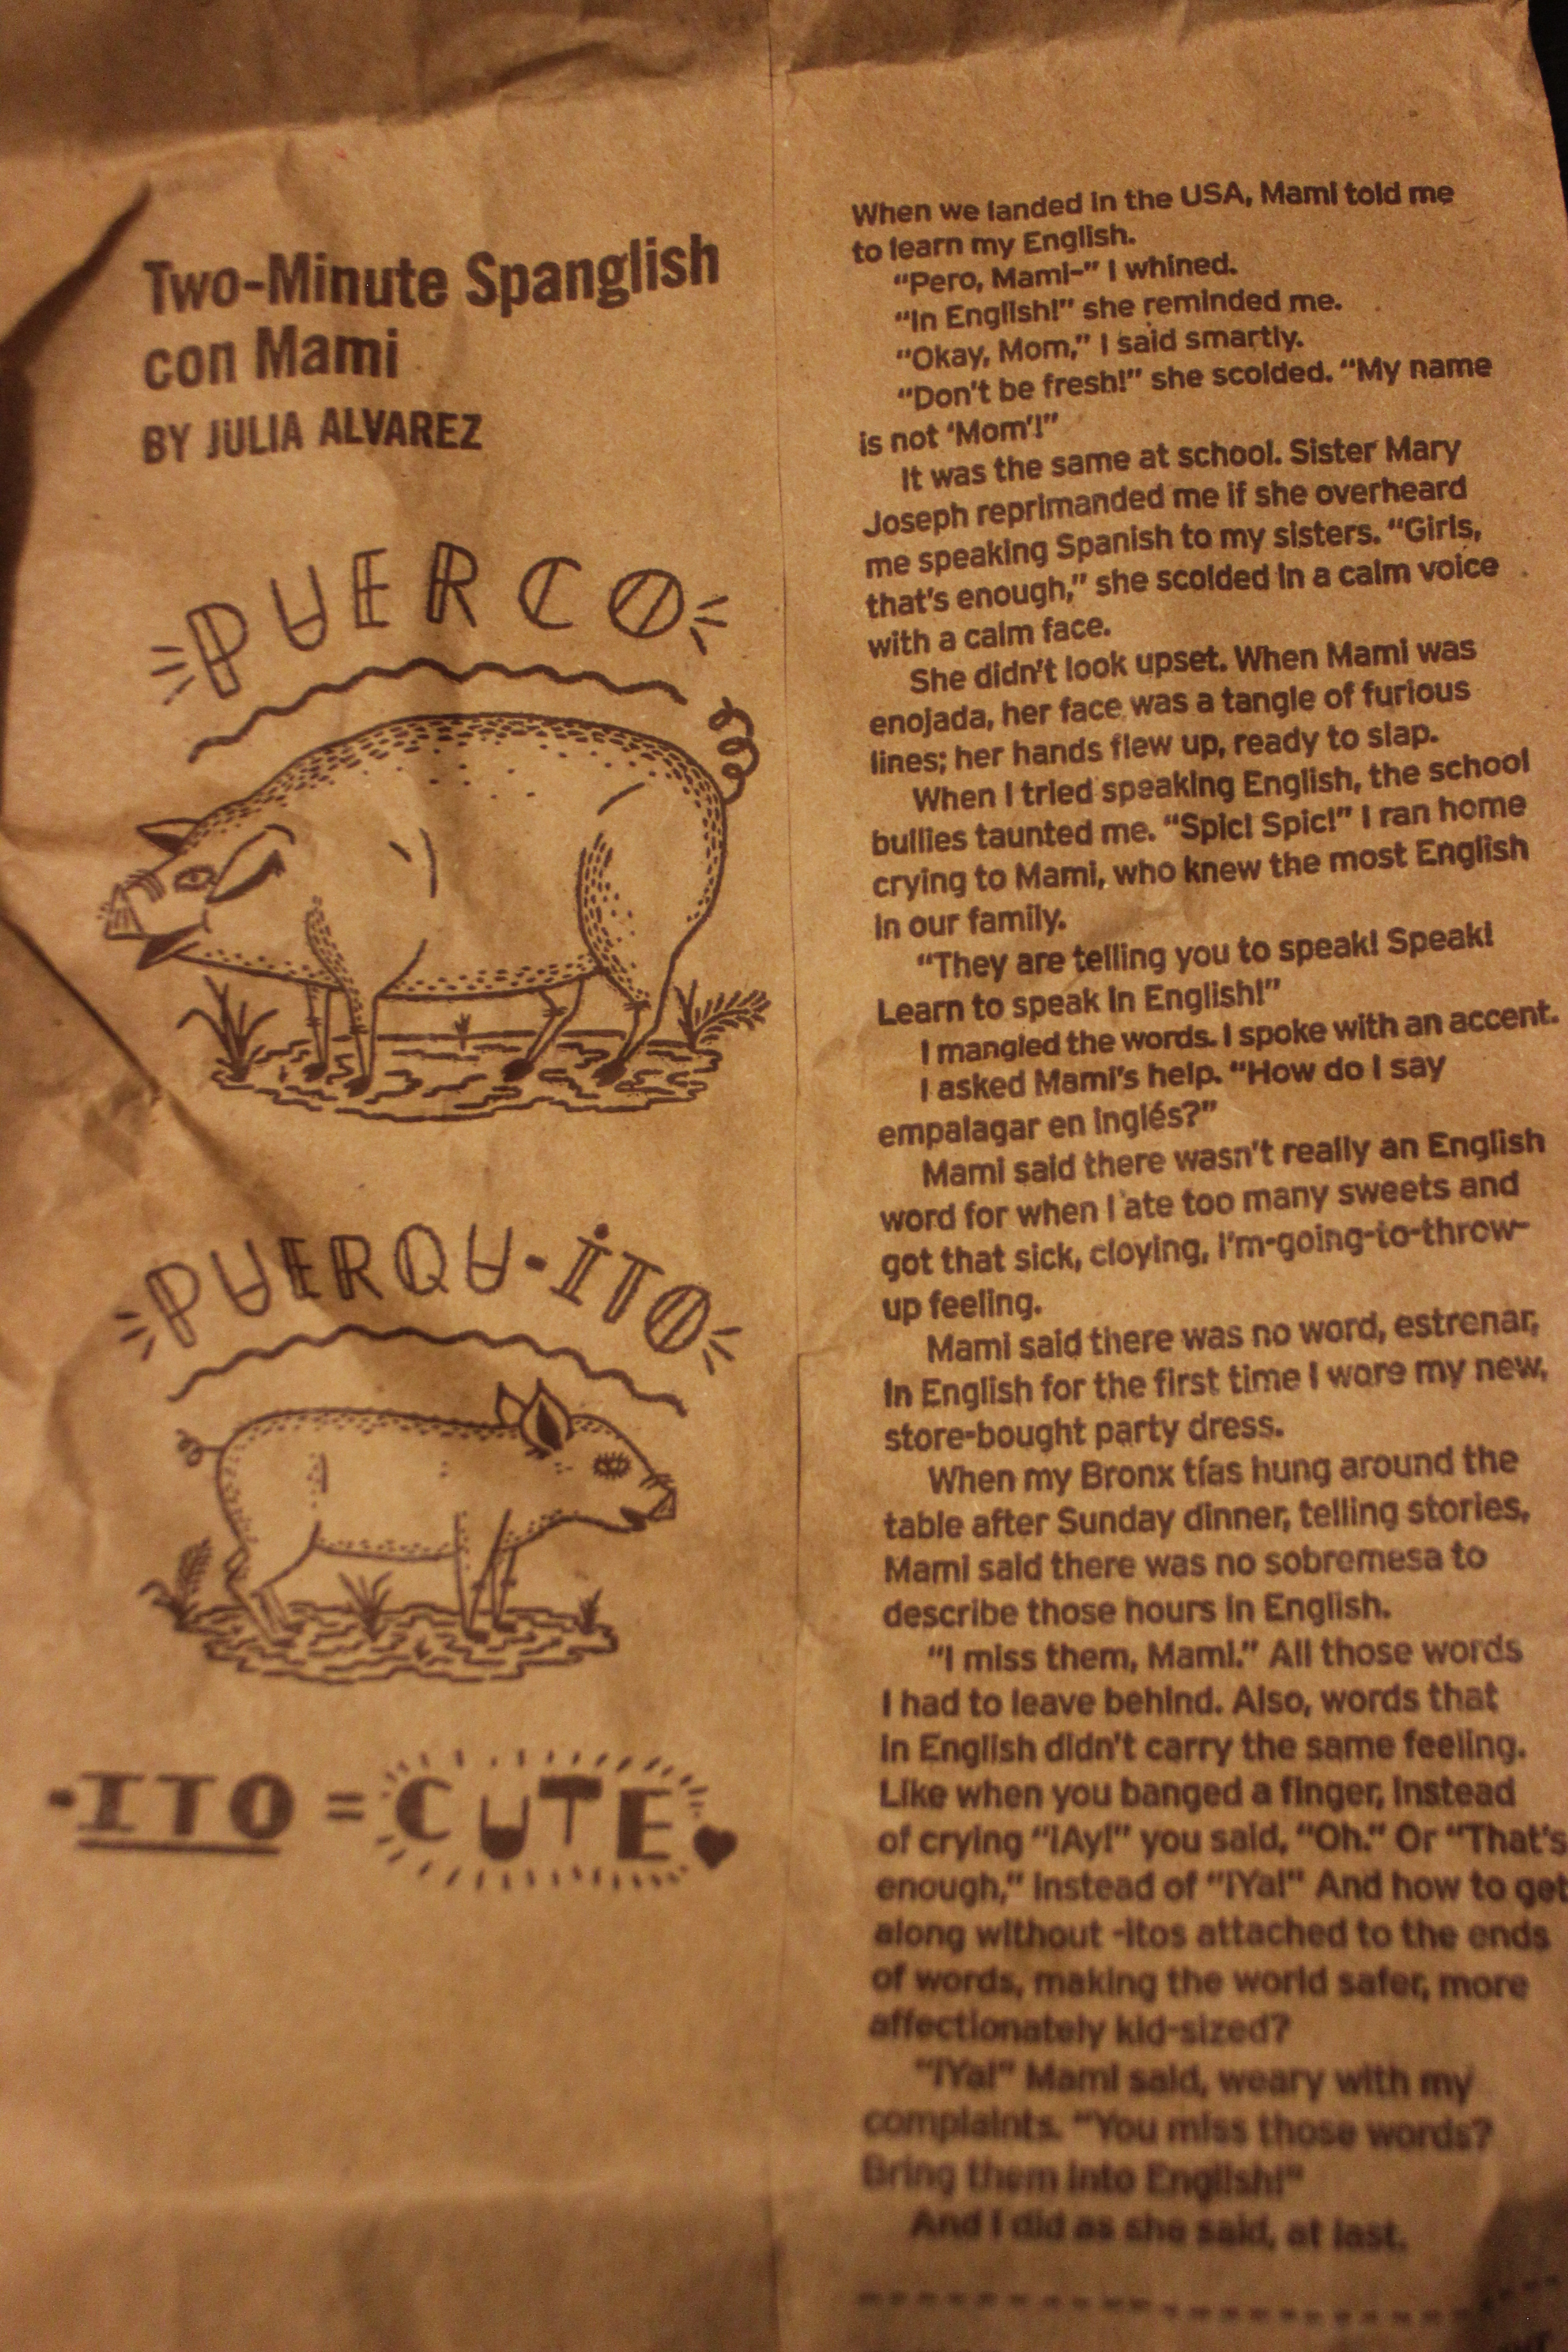 Two-Minute Spanglish
con Mami
BY JULIA ALVAREZ
PUERCO
PUERQU-ITO
-ITO = CUTE
When we landed in the USA, Mami told me
to learn my English.
“Pero, Mami–” I whined.
“In English!” she reminded me.
“Okay, Mom,” I said smartly.
“Don't be fresh!” she scolded. “My name
is not ‘Mom’!”
It was the same at school. Sister Mary
Joseph reprimanded me if she overheard
me speaking Spanish to my sisters. “Girls,
that's enough,” she scolded in a calm voice
with a calm face.
She didn't look upset. When Mami was
enojada, her face was a tangle of furious
lines; her hands flew up, ready to slap.
When I tried speaking English, the school
bullies taunted me. “Spic! Spic!” I ran home
crying to Mami, who knew the most English
in our family.
“They are telling you to speak! Speak!
Learn to speak in English!”
I mangled the words. I spoke with an accent.
I asked Mami's help. “How do I say
empalagar en inglés?”
Mami said there wasn't really an English
word for when I ate too many sweets and
got that sick, cloying, I'm-going-to-throw-
up feeling.
Mami said there was no word, estrenar,
in English for the first time I wore my new,
store-bought party dress.
When my Bronx tías hung around the
table after Sunday dinner, telling stories,
Mami said there was no sobremesa to
describe those hours in English.
“I miss them, Mami.” All those words
I had to leave behind. Also, words that
in English didn't carry the same feeling.
Like when you banged a finger, instead
of crying “¡Ay!” you said, “Oh.” Or “That's
enough,” instead of “¡Ya!” And how to get
along without -itos attached to the ends
of words, making the world safer, more
affectionately kid-sized?
“¡Ya!” Mami said, weary with my
complaints. “You miss those words?
Bring them into English!”
And I did as she said, at last.